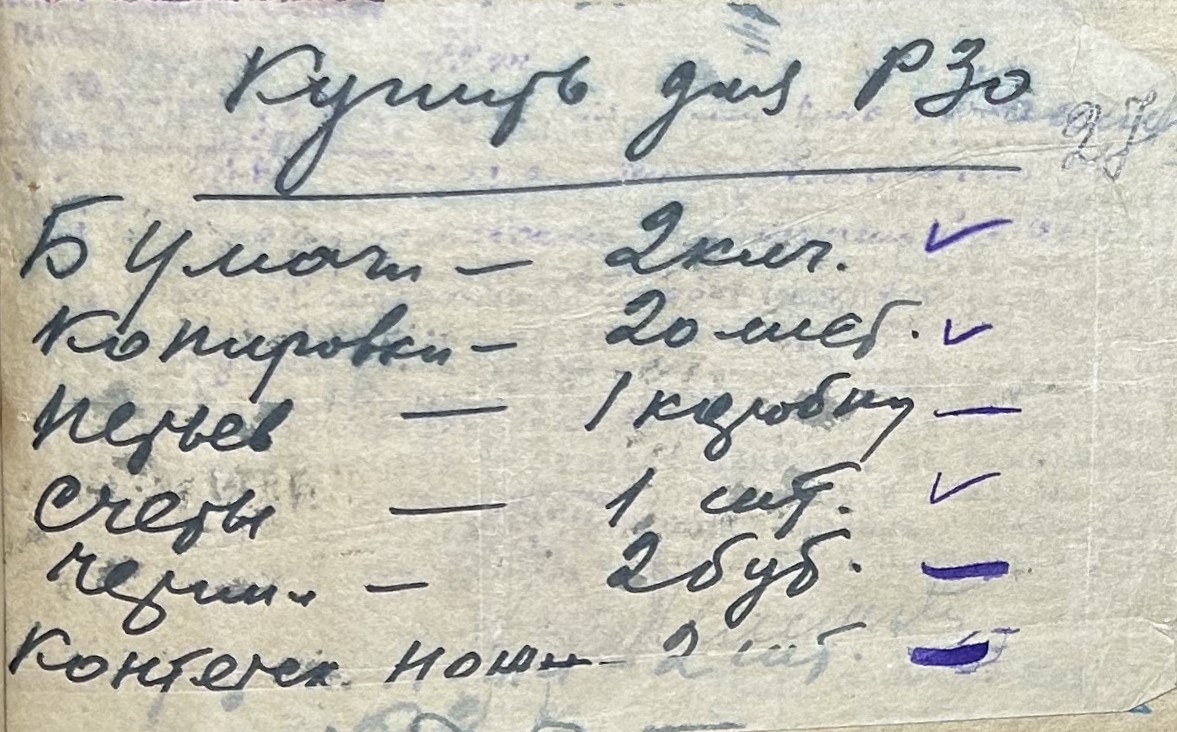 Купить для РЗо
27
Бумаги — 2 клгр.
Копировки — 20 лист.
Перьев — 1 коробку —
Счеты — 1 шт.
Чернил — 2 буб. —
Контерск. ножи — 2 шт. —